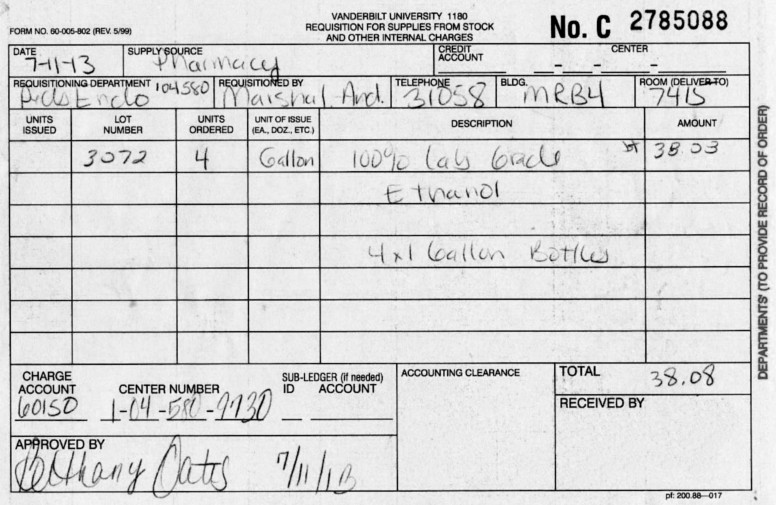 FORM NO. 60-005-802 (REV. 5/99)
VANDERBILT UNIVERSITY 1180
REQUISITION FOR SUPPLIES FROM STOCK
AND OTHER INTERNAL CHARGES
No. C 2785088
DATE 7-11-13
SUPPLY SOURCE Pharmacy
CREDIT ACCOUNT
CENTER
REQUISITIONING DEPARTMENT Peds Endo 104580
REQUISITIONED BY Marshal And.
TELEPHONE 31058
BLDG. MRB4
ROOM (DELIVER TO) 7415
UNITS ISSUED LOT NUMBER UNITS ORDERED UNIT OF ISSUE (EA., DOZ., ETC.) DESCRIPTION AMOUNT
3072 4 Gallon 100% Lab Grade 38.03
Ethanol
4x1 Gallon Bottles
CHARGE ACCOUNT 60150
CENTER NUMBER 1-04-580-9930
SUB-LEDGER (if needed)
ID ACCOUNT
ACCOUNTING CLEARANCE
TOTAL 38.08
RECEIVED BY
APPROVED BY
Bethany Oates 7/11/13
pf: 200.88—017
DEPARTMENTS' (TO PROVIDE RECORD OF ORDER)